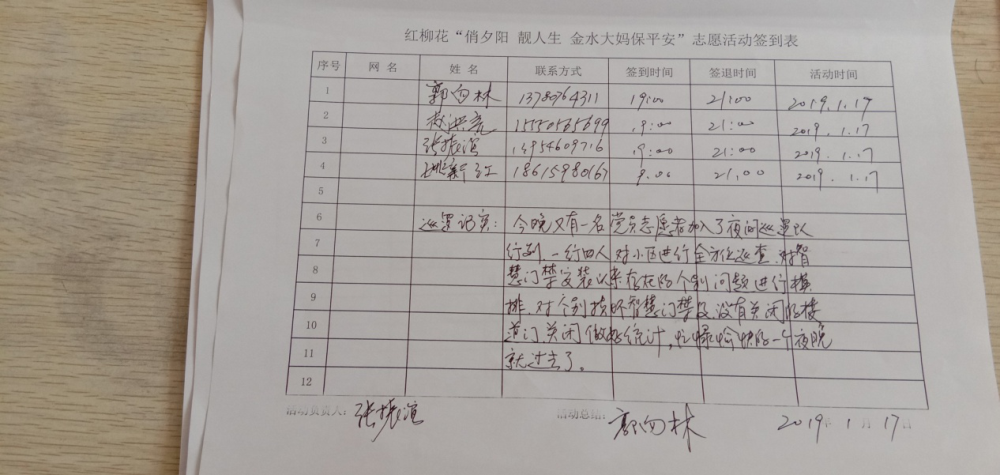 红柳花“俏夕阳 靓人生 金水大妈保平安”志愿活动签到表
序号 网名 姓名 联系方式 签到时间 签退时间 活动时间
1 郭向林 13780764311 19:00 21:00 2019.1.17
2 15550565699 19:00 21:00 2019.1.17
3 张振滨 13954609716 19:00 21:00 2019.1.17
4 姚新江 18615980167 9.00 21:00 2019.1.17
5
6 巡逻记实: 今晚又有一名党员志愿者加入了夜间巡逻队
7 行列,一行四人对小区进行全方位巡查,对智
8 慧门禁安装以来存在的个别问题进行摸
9 排,对个别损坏智慧门禁及没有关闭的楼
10 道门关闭做好统计,忙碌愉快的一个夜晚
11 就过去了。
12
活动负责人: 张振滨 活动总结: 郭向林 2019年1月17日